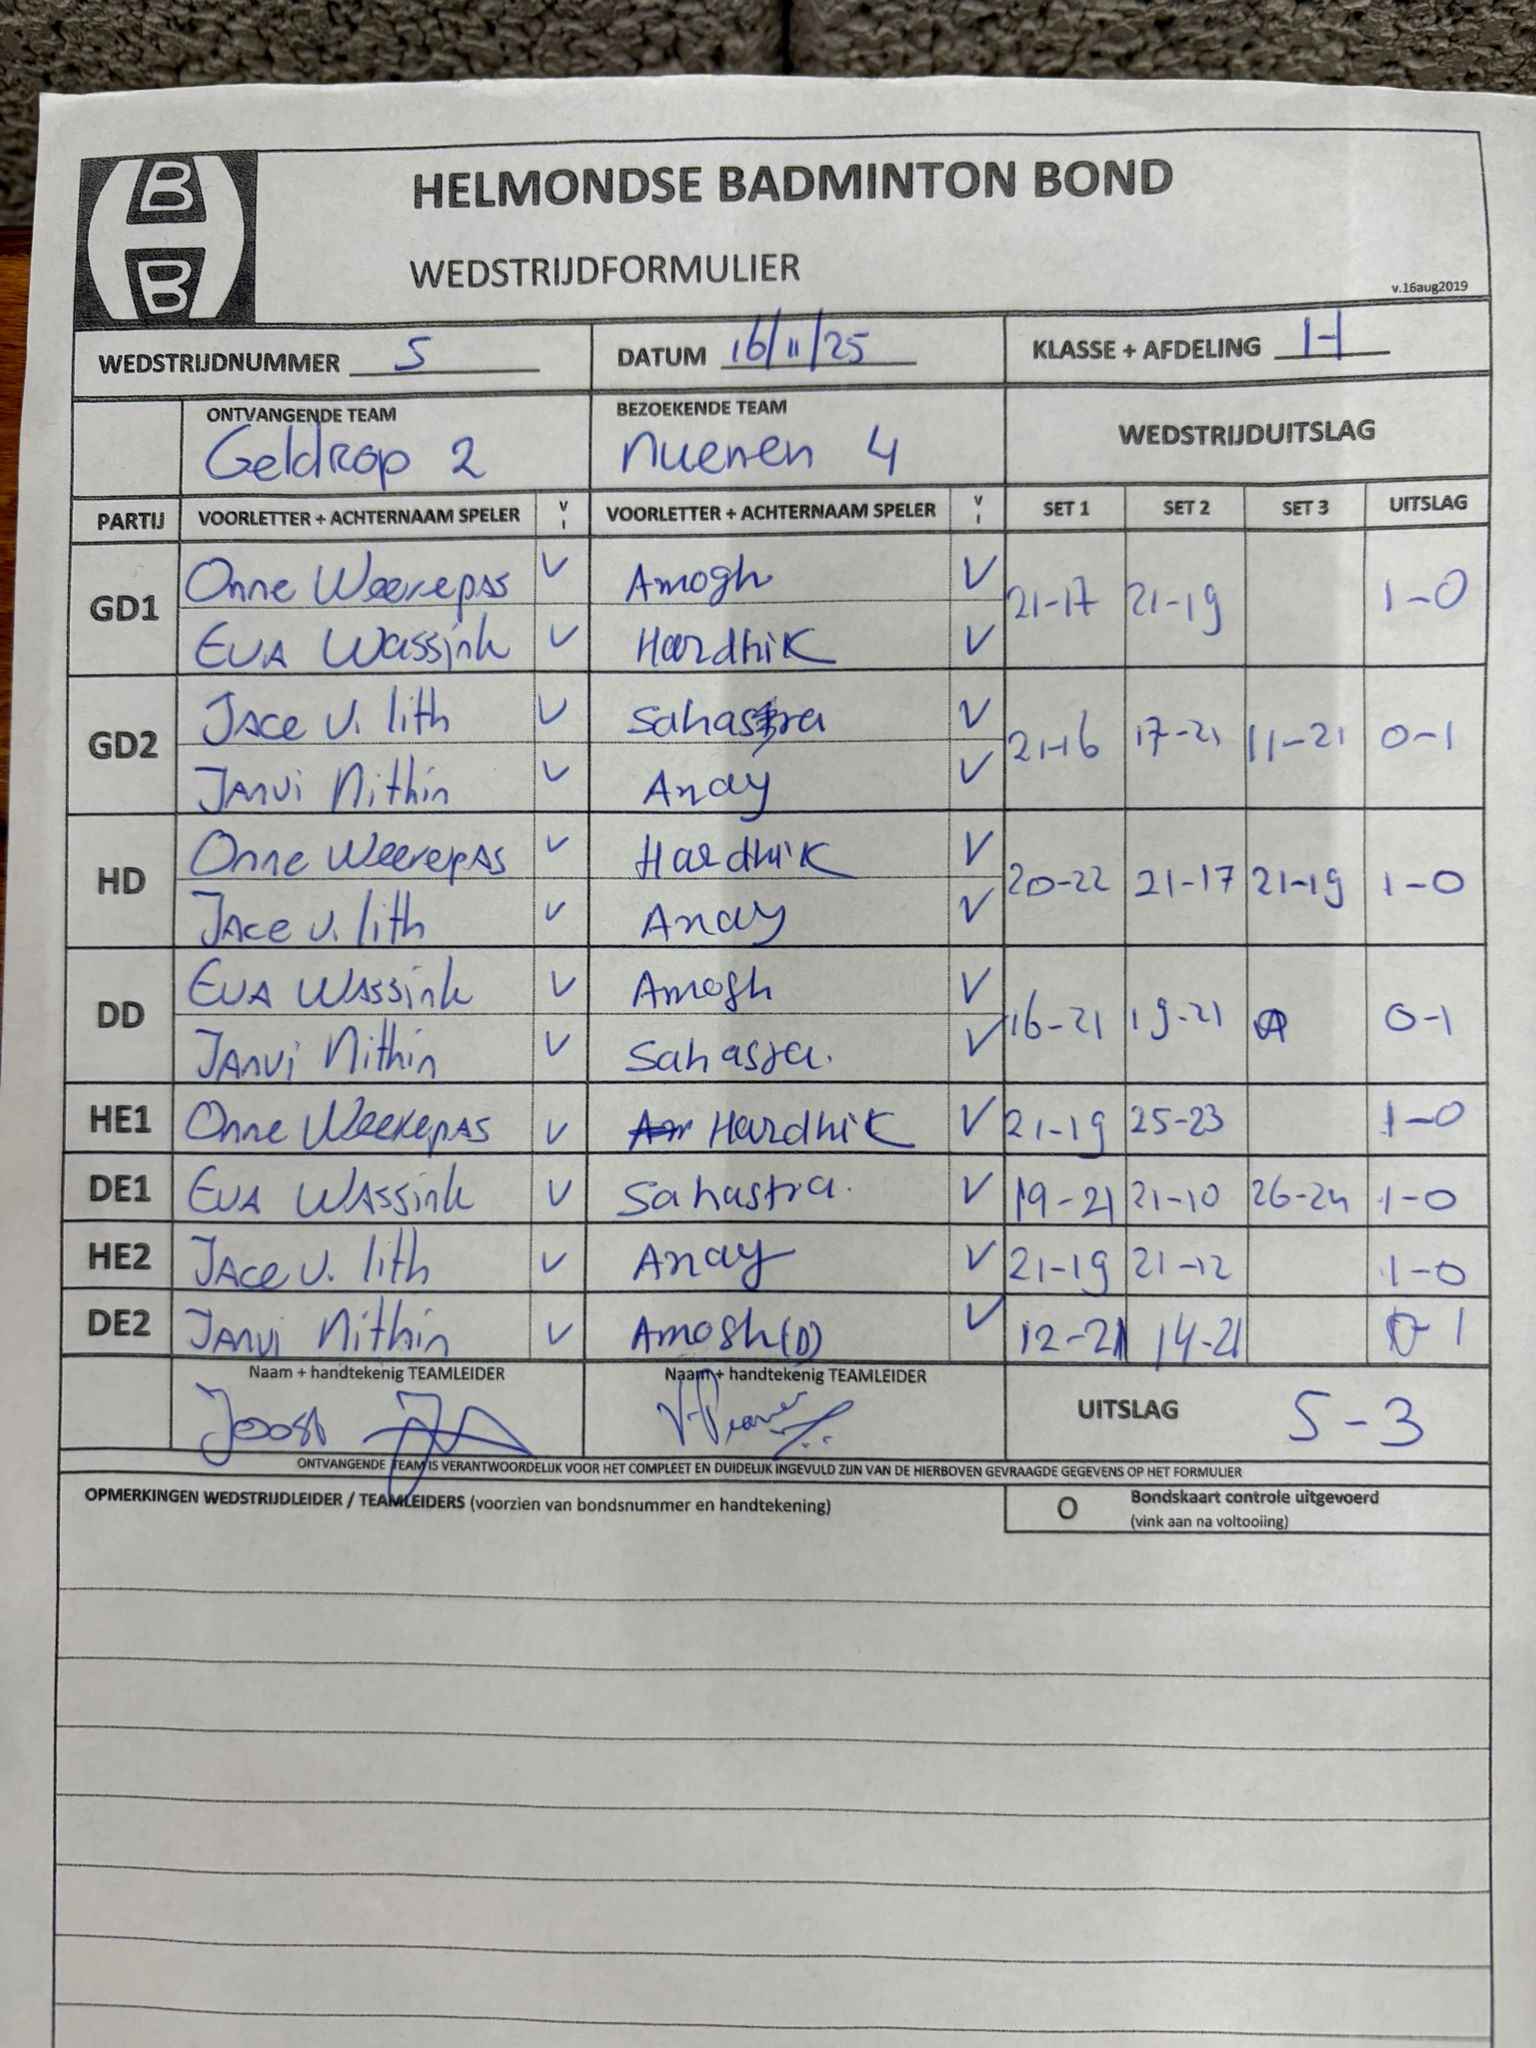 B
B
HELMONDSE BADMINTON BOND
WEDSTRIJDFORMULIER
v.16aug2019
WEDSTRIJDNUMMER 5 DATUM 16/11/25 KLASSE + AFDELING H
ONTVANGENDE TEAM BEZOEKENDE TEAM
Geldrop 2 nuenen 4 WEDSTRIJDUITSLAG
PARTIJ VOORLETTER + ACHTERNAAM SPELER V I VOORLETTER + ACHTERNAAM SPELER V I SET 1 SET 2 SET 3 UITSLAG
GD1 Onne Weerepas V Amogh V 21-17 21-19 1-0
Eva Wassink V Hardhik V
GD2 Jace v. lith V Sahastra V 21-16 17-21 11-21 0-1
Janvi Nithin V Anay V
HD Onne Weerepas V Hardhik V 20-22 21-17 21-19 1-0
Jace v. lith V Anay V
DD Eva Wassink V Amogh V 16-21 19-21 0-1
Janvi Nithin V Sahasra. V
HE1 Onne Weerepas V Hardhik V 21-19 25-23 1-0
DE1 Eva Wassink V Sahastra. V 19-21 21-10 26-24 1-0
HE2 Jace v. lith V Anay V 21-19 21-12 1-0
DE2 Janvi Nithin V Amogh(D) V 12-21 14-21 0-1
Naam + handtekenig TEAMLEIDER Naam + handtekenig TEAMLEIDER
Joost UITSLAG 5-3
ONTVANGENDE TEAM IS VERANTWOORDELIJK VOOR HET COMPLEET EN DUIDELIJK INGEVULD ZIJN VAN DE HIERBOVEN GEVRAAGDE GEGEVENS OP HET FORMULIER
OPMERKINGEN WEDSTRIJDLEIDER / TEAMLEIDERS (voorzien van bondsnummer en handtekening) O Bondskaart controle uitgevoerd
(vink aan na voltooiing)